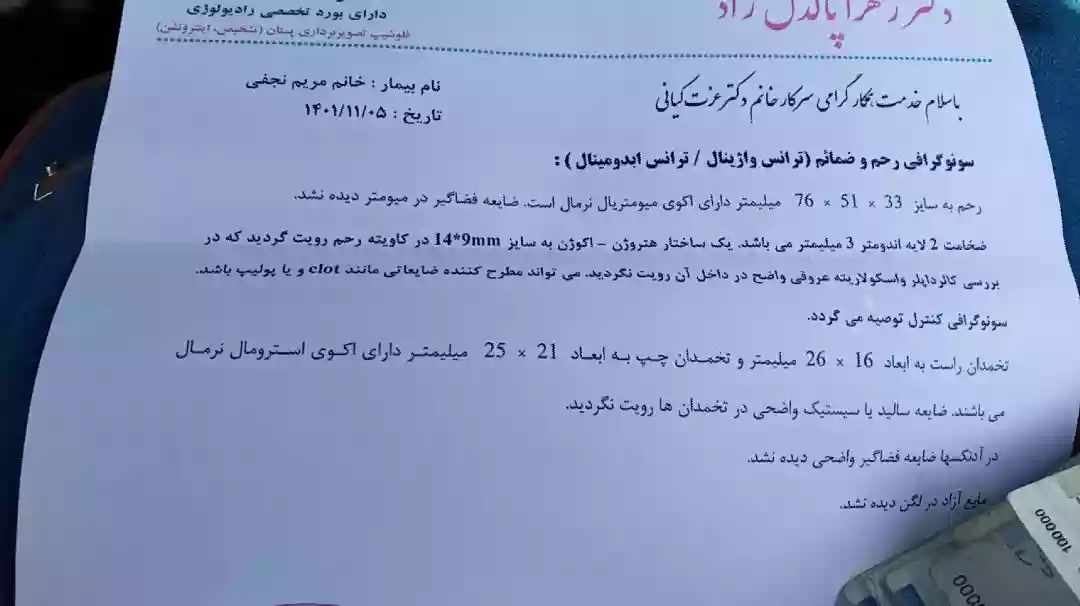 دکتر زهرا پاکدل راد
دارای بورد تخصصی رادیولوژی
فلوشیپ تصویربرداری پستان (تشخیص، اینترونشن)
باسلام خدمت همکار گرامی سرکار خانم دکتر عزت کیانی
نام بیمار : خانم مریم نجفی
تاریخ : ۱۴۰۱/۱۱/۰۵
سونوگرافی رحم و ضمائم (ترانس واژینال / ترانس ابدومینال ) :
رحم به سایز 33 × 51 × 76 میلیمتر دارای اکوی میومتریال نرمال است. ضایعه فضاگیر در میومتر دیده نشد.
ضخامت 2 لایه اندومتر 3 میلیمتر می باشد. یک ساختار هتروژن - اکوژن به سایز 14*9mm در کاویته رحم رویت گردید که در
بررسی کالرداپلر واسکولاریته عروقی واضح در داخل آن رویت نگردید. می تواند مطرح کننده ضایعاتی مانند clot و یا پولیپ باشد.
سونوگرافی کنترل توصیه می گردد.
تخمدان راست به ابعاد 16 × 26 میلیمتر و تخمدان چپ به ابعاد 21 × 25 میلیمتر دارای اکوی استرومال نرمال
می باشند. ضایعه سالید یا سیستیک واضحی در تخمدان ها رویت نگردید.
در آدنکسها ضایعه فضاگیر واضحی دیده نشد.
مایع آزاد در لگن دیده نشد.
100000